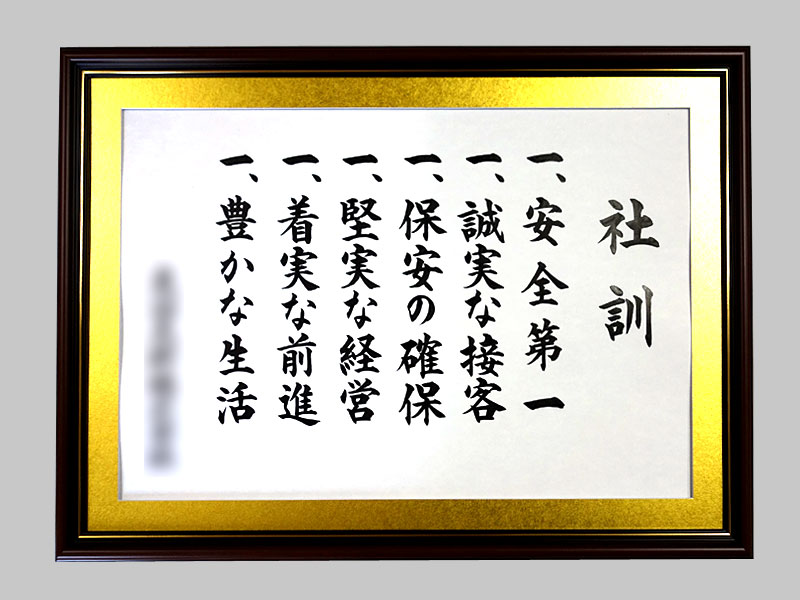 社訓
一、安全第一
一、誠実な接客
一、保安の確保
一、堅実な経営
一、着実な前進
一、豊かな生活